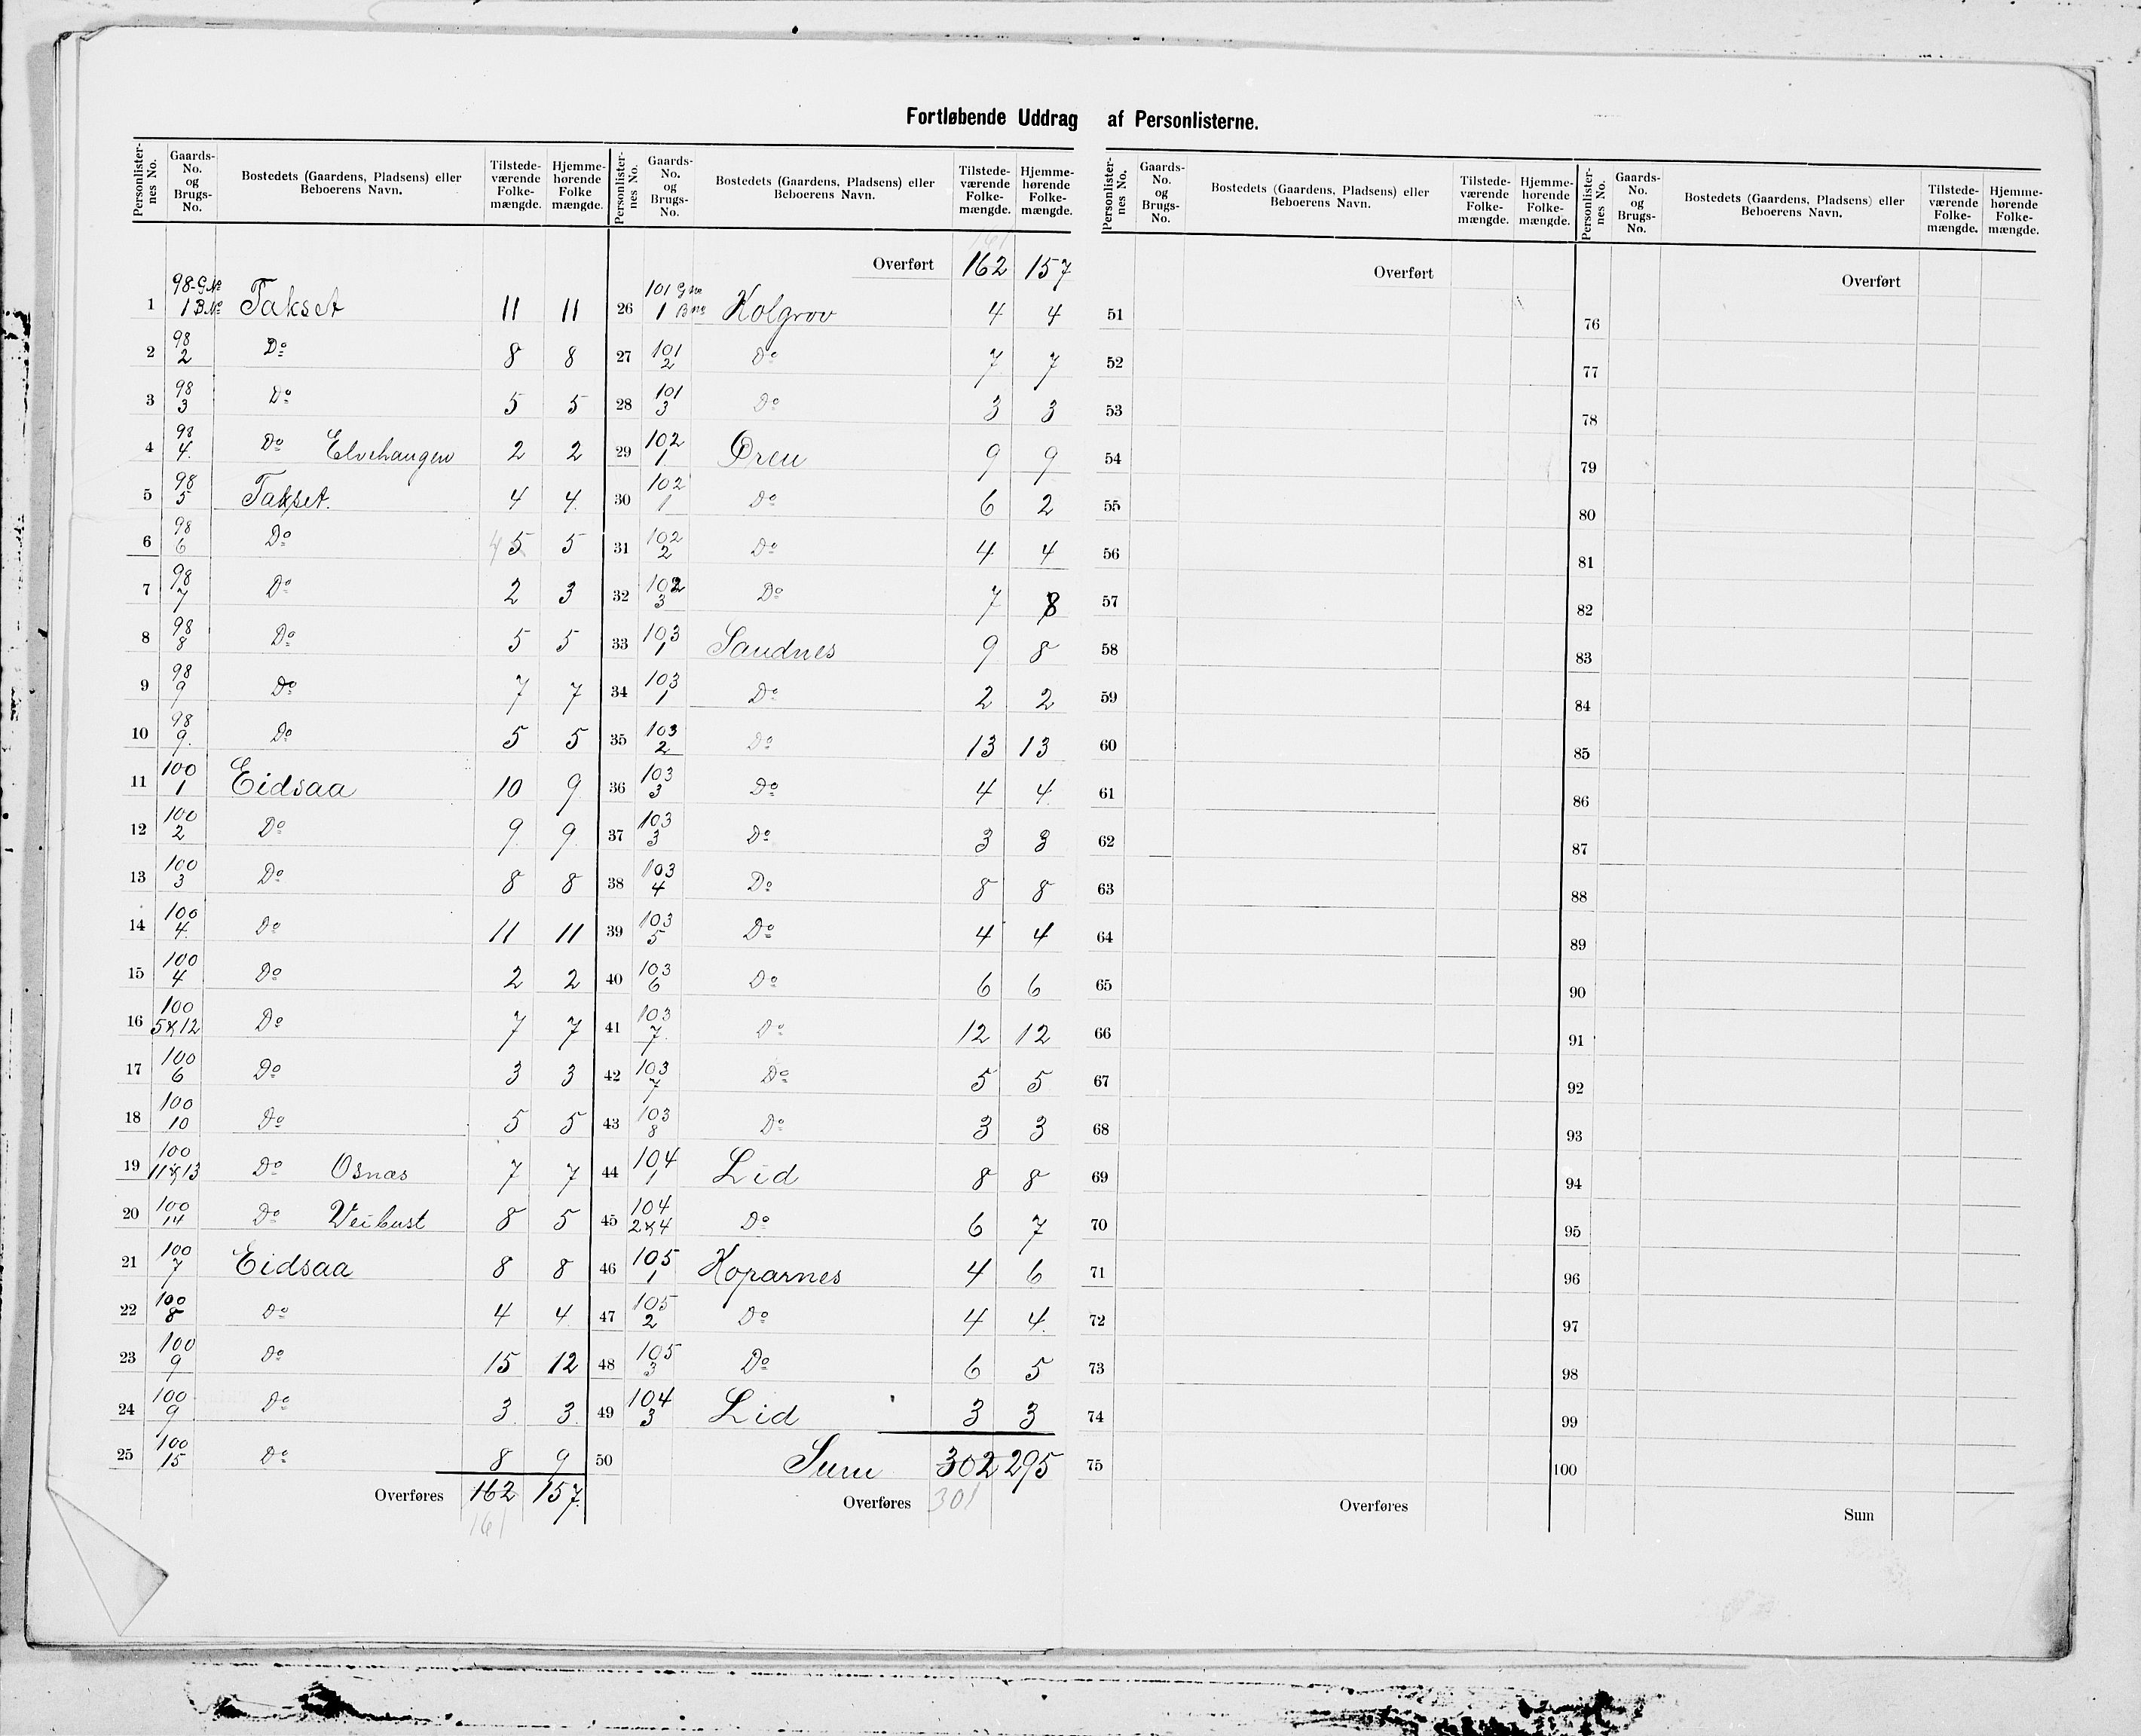 Fortløbende Uddrag af Personlisterne.
Personlister-nes No. | Gaards-No. og Brugs-No. | Bostedets (Gaardens, Pladsens) eller Beboerens Navn. | Tilstede-værende Folke-mængde. | Hjemme-hørende Folke mængde.
1 | 98 G.No 1 B.No | Takset | 11 | 11
2 | 98 2 | Do | 8 | 8
3 | 98 3 | Do | 5 | 5
4 | 98 4. | Do Elvehaugen | 2 | 2
5 | 98 5 | Takset. | 4 | 4.
6 | 98 6 | Do | 4 5 | 5
7 | 98 7 | Do | 2 | 3
8 | 98 8 | Do | 5 | 5
9 | 98 9 | Do | 7 | 7
10 | 98 9. | Do | 5 | 5
11 | 100 1 | Eidsaa | 10 | 9
12 | 100 2 | Do | 9 | 9
13 | 100 3 | Do | 8 | 8
14 | 100 4. | Do | 11 | 11
15 | 100 4 | Do | 2 | 2
16 | 100 5&12 | Do | 7 | 7
17 | 100 6 | Do | 3 | 3
18 | 100 10 | Do | 5 | 5
19 | 100 11&13 | Do Osnæs | 7 | 7
20 | 100 14 | Do Veibust | 8 | 5
21 | 100 7 | Eidsaa | 8 | 8
22 | 100 8 | Do | 4 | 4
23 | 100 9 | Do | 15 | 12
24 | 100 9 | Do | 3 | 3
25 | 100 15 | Do | 8 | 9
Overføres 162 157.
161
Personlister-nes No. | Gaards-No. og Brugs-No. | Bostedets (Gaardens, Pladsens) eller Beboerens Navn. | Tilstede-værende Folke-mængde. | Hjemme-hørende Folke-mængde.
161
Overført 162 157
26 | 101 G No 1 B No | Kolgrov | 4 | 4
27 | 101 2 | Do | 7 | 7
28 | 101 3 | Do | 3 | 3
29 | 102 1 | Øren | 9 | 9
30 | 102 1 | Do | 6 | 2
31 | 102 2 | Do | 4 | 4
32 | 102 3 | Do | 7 | 8
33 | 103 1 | Sandnes | 9 | 8
34 | 103 1 | Do | 2 | 2
35 | 103 2 | Do | 13 | 13
36 | 103 3 | Do | 4 | 4
37 | 103 3 | Do | 3 | 3
38 | 103 4 | Do | 8 | 8
39 | 103 5 | Do | 4 | 4
40 | 103 6 | Do | 6 | 6
41 | 103 7. | Do | 12 | 12
42 | 103 7 | Do | 5 | 5
43 | 103 8 | Do | 3 | 3
44 | 104 1 | Lid | 8 | 8
45 | 104 2&4 | Do | 6 | 7
46 | 105 1 | Koparnes | 4 | 6
47 | 105 2 | Do | 4 | 4.
48 | 105 3 | Do | 6 | 5
49 | 104 3 | Lid | 3 | 3
50 | Sum | 302 | 295
Overføres 301
Personlister-nes No. | Gaards-No. og Brugs-No. | Bostedets (Gaardens, Pladsens) eller Beboerens Navn. | Tilstede-værende Folke-mængde. | Hjemme-hørende Folke-mængde.
Overført
51
52
53
54
55
56
57
58
59
60
61
62
63
64
65
66
67
68
69
70
71
72
73
74
75
Overføres
Personlister-nes No. | Gaards-No. og Brugs-No. | Bostedets (Gaardens, Pladsens) eller Beboerens Navn. | Tilstede-værende Folke-mængde. | Hjemme-hørende Folke-mængde.
Overført
76
77
78
79
80
81
82
83
84
85
86
87
88
89
90
91
92
93
94
95
96
97
98
99
100
Sum